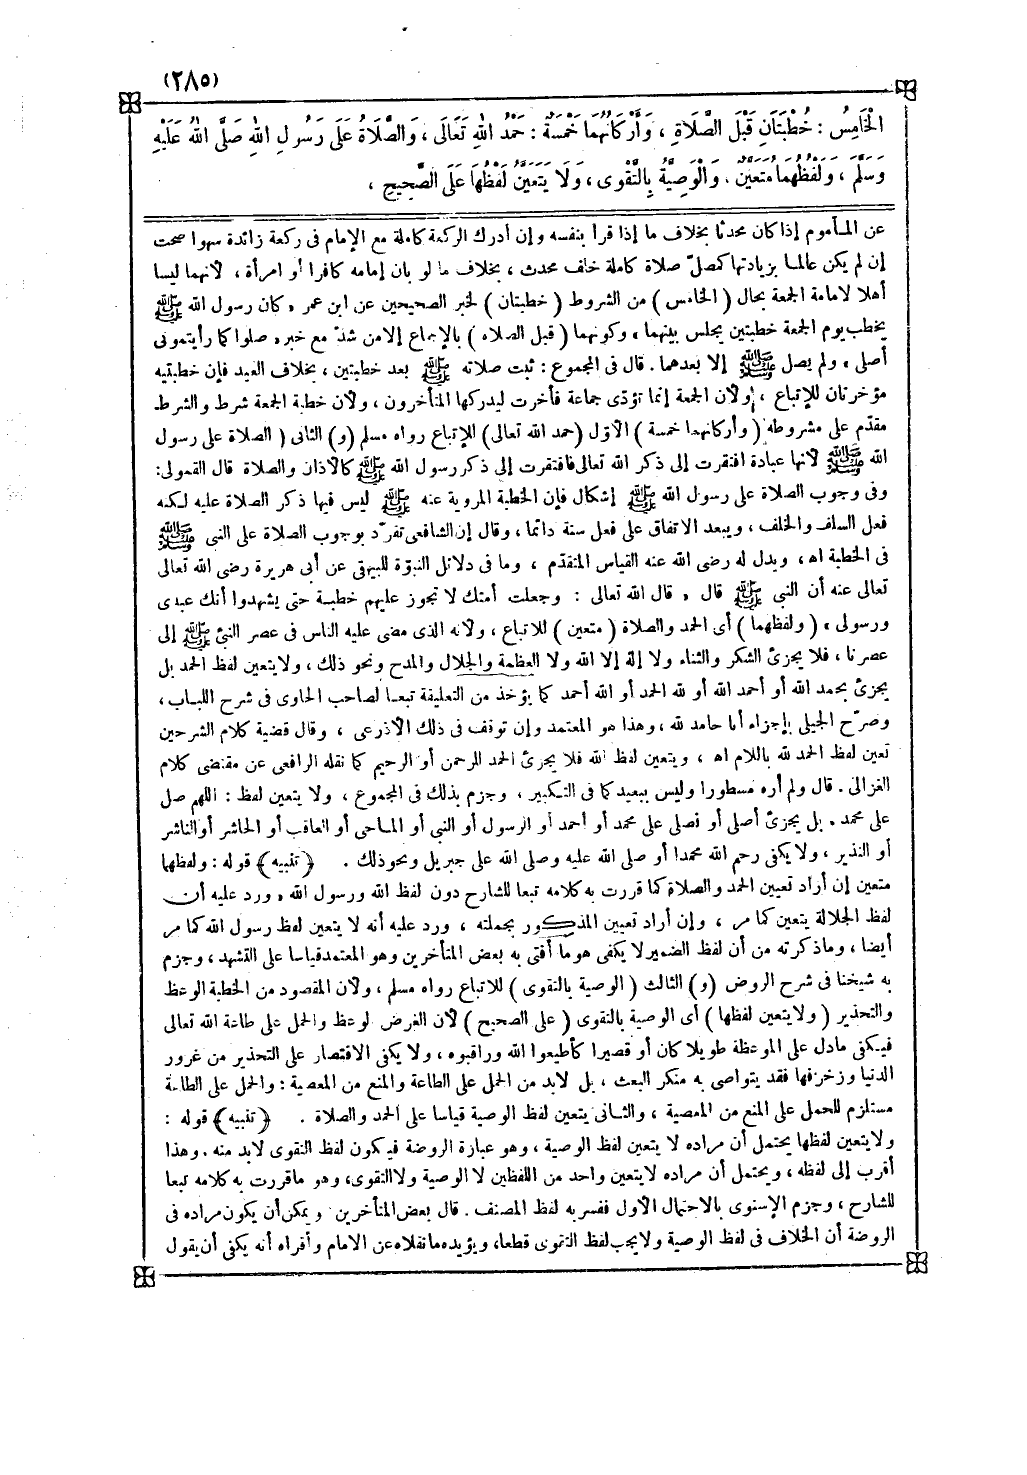 (٢٨٥)
الْخَامِسُ : خُطْبَتَانِ قَبْلَ الصَّلَاةِ ، وَأَرْكَانُهُمَا خَمْسَةٌ : حَمْدُ اللهِ تَعَالَى ، وَالصَّلَاةُ عَلَى رَسُولِ اللهِ صَلَّى اللهُ عَلَيْهِ
وَسَلَّمَ ، وَلَفْظُهُمَا مُتَعَيِّنٌ . وَالْوَصِيَّةُ بِالتَّقْوَى ، وَلَا يَتَعَيَّنُ لَفْظُهَا عَلَى الصَّحِيحِ ،
عن المأموم إذا كان محدثا بخلاف ما إذا قرأ بنفسه وإن أدرك الركعة كاملة مع الإمام فى ركعة زائدة سهوا صحت
إن لم يكن عالما بزيادتها كمصلّ صلاة كاملة خلف محدث ، بخلاف ما لو بان إمامه كافرا أو امرأة ، لأنهما ليسا
أهلا لإمامة الجمعة بحال ( الخامس ) من الشروط ( خطبتان ) لخبر الصحيحين عن ابن عمر « كان رسول الله ﷺ
يخطب يوم الجمعة خطبتين يجلس بينهما » وكونهما ( قبل الصلاة ) بالإجماع إلا من شذ مع خبر « صلوا كما رأيتمونى
أصلى » ولم يصل ﷺ إلا بعدهما . قال فى المجموع : ثبت صلاته ﷺ بعد خطبتين ، بخلاف العيد فإن خطبتيه
مؤخرتان للإتباع ، ولأن الجمعة إنما تؤدّى جماعة فأخرت ليدركها المتأخرون ، ولأن خطبة الجمعة شرط والشرط
مقدّم على مشروطه ( وأركانهما خمسة ) الأوّل (حمد الله تعالى) للإتباع رواه مسلم (و) الثانى ( الصلاة على رسول
الله ﷺ لأنها عبادة افتقرت إلى ذكر الله تعالى فافتقرت إلى ذكر رسول الله ﷺ كالأذان والصلاة قال القمولى:
وفى وجوب الصلاة على رسول الله ﷺ إشكال فإن الخطبة المروية عنه ﷺ ليس فيها ذكر الصلاة عليه لكنه
فعل السلف والخلف ، ويبعد الاتفاق على فعل سنة دائما ، وقال إن الشافعى تفرّد بوجوب الصلاة على النبى ﷺ
فى الخطبة اه ، ويدل له رضى الله عنه القياس المتقدّم ، وما فى دلائل النبوّة للبيهقى عن أبى هريرة رضى الله تعالى
تعالى عنه أن النبى ﷺ قال « قال الله تعالى : وجعلت أمتك لا تجوز عليهم خطبة حتى يشهدوا أنك عبدى
ورسولى » ( ولفظهما ) أى الحمد والصلاة ( متعين ) للاتباع ، ولأنه الذى مضى عليه الناس فى عصر النبىّ ﷺ إلى
عصرنا ، فلا يجزئ الشكر والثناء ولا إله إلا الله ولا العظمة والجلال والمدح ونحو ذلك ، ولا يتعين لفظ الحمد بل
يجزئ بحمد الله أو أحمد الله أو لله الحمد أو الله أحمد كما يؤخذ من التعليقة تبعا لصاحب الحاوى فى شرح اللباب ،
وصرّح الجيلى بإجزاء أنا حامد لله ، وهذا هو المعتمد وإن توقف فى ذلك الأذرعى ، وقال قضية كلام الشرحين
تعين لفظ الحمد لله باللام اه ، ويتعين لفظ الله فلا يجزئ الحمد للرحمن أو الرحيم كما نقله الرافعى عن مقتضى كلام
الغزالى . قال ولم أره مسطورا وليس ببعيد كما فى التكبير ، وجزم بذلك فى المجموع ، ولا يتعين لفظ : اللهم صل
على محمد . بل يجزئ أصلى أو نصلى على محمد أو أحمد أو الرسول أو النبى أو الماحى أو العاقب أو الحاشر أو الناشر
أو النذير ، ولا يكفى رحم الله محمدا أو صلى الله عليه وصلى الله على جبريل ونحو ذلك . ﴿ تنبيه ﴾ قوله : ولفظهما
متعين إن أراد تعيين الحمد والصلاة كما قررت به كلامه تبعا للشارح دون لفظ الله ورسول الله ، ورد عليه أن
لفظ الجلالة يتعين كما مر ، وإن أراد تعيين المذكور بجملته ، ورد عليه أنه لا يتعين لفظ رسول الله كما مر
أيضا ، وما ذكرته من أن لفظ الضمير لا يكفى هو ما أفتى به بعض المتأخرين وهو المعتمد قياسا على التشهد ، وجزم
به شيخنا فى شرح الروض (و) الثالث ( الوصية بالتقوى ) للاتباع رواه مسلم ، ولأن المقصود من الخطبة الوعظ
والتحذير ( ولا يتعين لفظها ) أى الوصية بالتقوى ( على الصحيح ) لأن الغرض الوعظ والحمل على طاعة الله تعالى
فيكفى مادل على الموعظة طويلا كان أو قصيرا كأطيعوا الله وراقبوه ، ولا يكفى الاقتصار على التحذير من غرور
الدنيا وزخرفها فقد يتواصى به منكر البعث ، بل لابد من الحمل على الطاعة والمنع من المعصية : والحمل على الطاعة
مستلزم للحمل على المنع من المعصية ، والثانى يتعين لفظ الوصية قياسا على الحمد والصلاة . ﴿ تنبيه ﴾ قوله :
ولا يتعين لفظها يحتمل أن مراده لا يتعين لفظ الوصية ، وهو عبارة الروضة فيكون لفظ التقوى لابد منه . وهذا
أقرب إلى لفظه ، ويحتمل أن مراده لا يتعين واحد من اللفظين لا الوصية ولا التقوى، وهو ما قررت به كلامه تبعا
للشارح ، وجزم الإسنوى بالاحتمال الأول ففسر به لفظ المصنف . قال بعض المتأخرين ويمكن أن يكون مراده فى
الروضة أن الخلاف فى لفظ الوصية ولا يجب لفظ التقوى قطعا، ويؤيده ما نقلاه عن الامام وأقراه أنه يكفى أن يقول